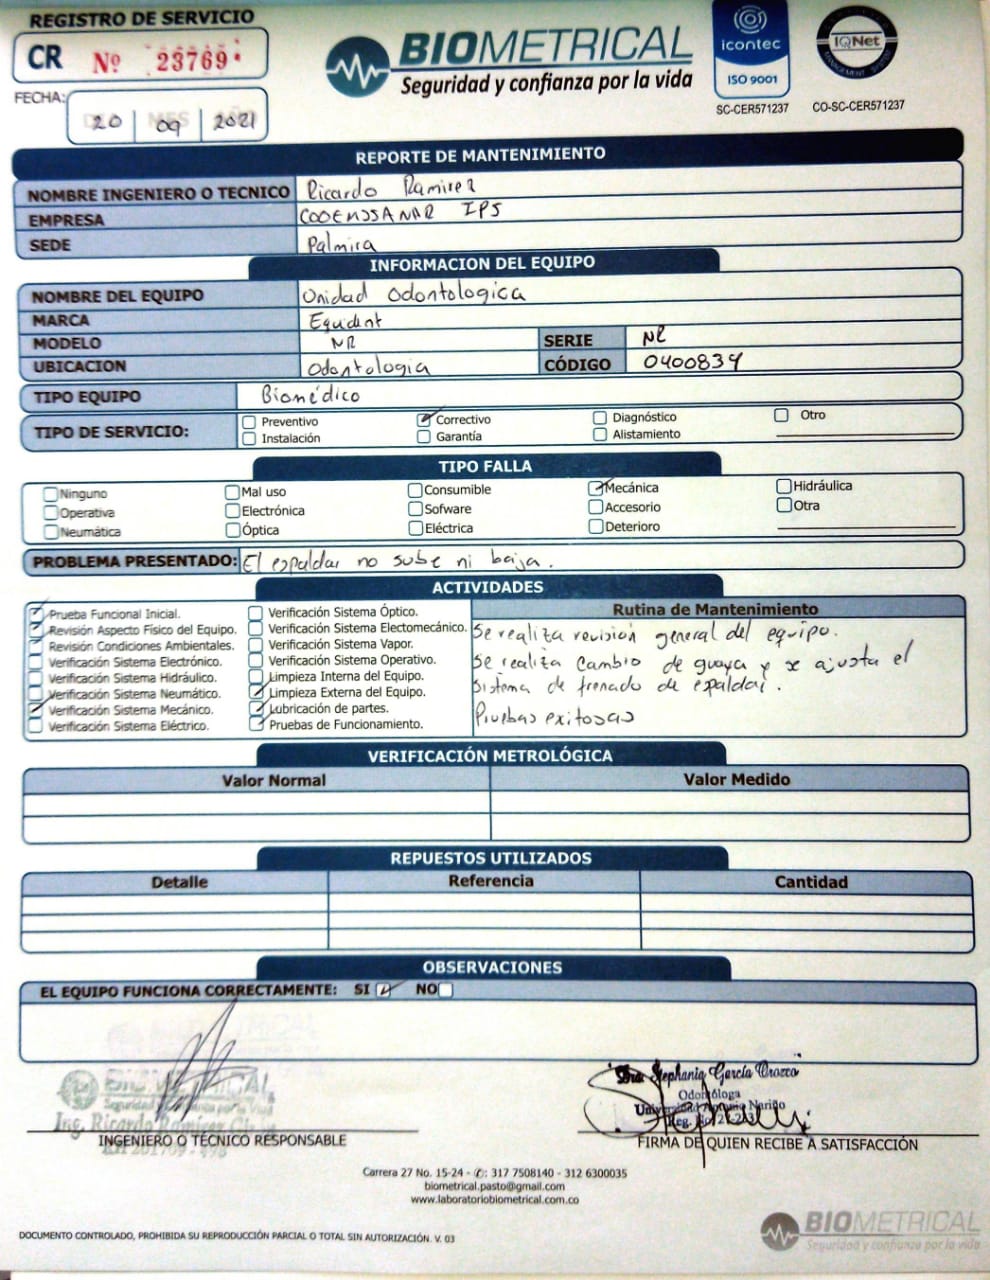 REGISTRO DE SERVICIO
CR Nº 23769
BIOMETRICAL
Seguridad y confianza por la vida
icontec
ISO 9001
SC-CER571237
IQNet
CO-SC-CER571237
FECHA:
20 09 2021
REPORTE DE MANTENIMIENTO
NOMBRE INGENIERO O TECNICO Ricardo Ramirez
EMPRESA CODEMSSANAR IPS
SEDE Palmira
INFORMACION DEL EQUIPO
NOMBRE DEL EQUIPO Unidad Odontologica
MARCA Equident
MODELO NR SERIE NR
UBICACION Odontologia CÓDIGO 0400834
TIPO EQUIPO Biomédico
TIPO DE SERVICIO:
Preventivo Correctivo Diagnóstico Otro
Instalación Garantía Alistamiento
TIPO FALLA
Ninguno Mal uso Consumible Mecánica Hidráulica
Operativa Electrónica Sofware Accesorio Otra
Neumática Óptica Eléctrica Deterioro
PROBLEMA PRESENTADO: El espaldar no sube ni baja.
ACTIVIDADES
Prueba Funcional Inicial.
Revisión Aspecto Físico del Equipo.
Revisión Condiciones Ambientales.
Verificación Sistema Electrónico.
Verificación Sistema Hidráulico.
Verificación Sistema Neumático.
Verificación Sistema Mecánico.
Verificación Sistema Eléctrico.
Verificación Sistema Óptico.
Verificación Sistema Electomecánico.
Verificación Sistema Vapor.
Verificación Sistema Operativo.
Limpieza Interna del Equipo.
Limpieza Externa del Equipo.
Lubricación de partes.
Pruebas de Funcionamiento.
Rutina de Mantenimiento
Se realiza revisión general del equipo.
Se realiza cambio de guaya y se ajusta el
sistema de frenado de espaldar.
Pruebas exitosas
VERIFICACIÓN METROLÓGICA
Valor Normal Valor Medido
REPUESTOS UTILIZADOS
Detalle Referencia Cantidad
OBSERVACIONES
EL EQUIPO FUNCIONA CORRECTAMENTE: SI NO
BIOMETRICAL
Seguridad y confianza por la vida
Ing. Ricardo Ramirez
INGENIERO O TÉCNICO RESPONSABLE
Dra. Stephania García Orozco
Odontóloga
Universidad Antonio Nariño
FIRMA DE QUIEN RECIBE A SATISFACCIÓN
Carrera 27 No. 15-24 - ✆: 317 7508140 - 312 6300035
biometrical.pasto@gmail.com
www.laboratoriobiometrical.com.co
DOCUMENTO CONTROLADO, PROHIBIDA SU REPRODUCCIÓN PARCIAL O TOTAL SIN AUTORIZACIÓN. V. 03
BIOMETRICAL
Seguridad y confianza por la vida